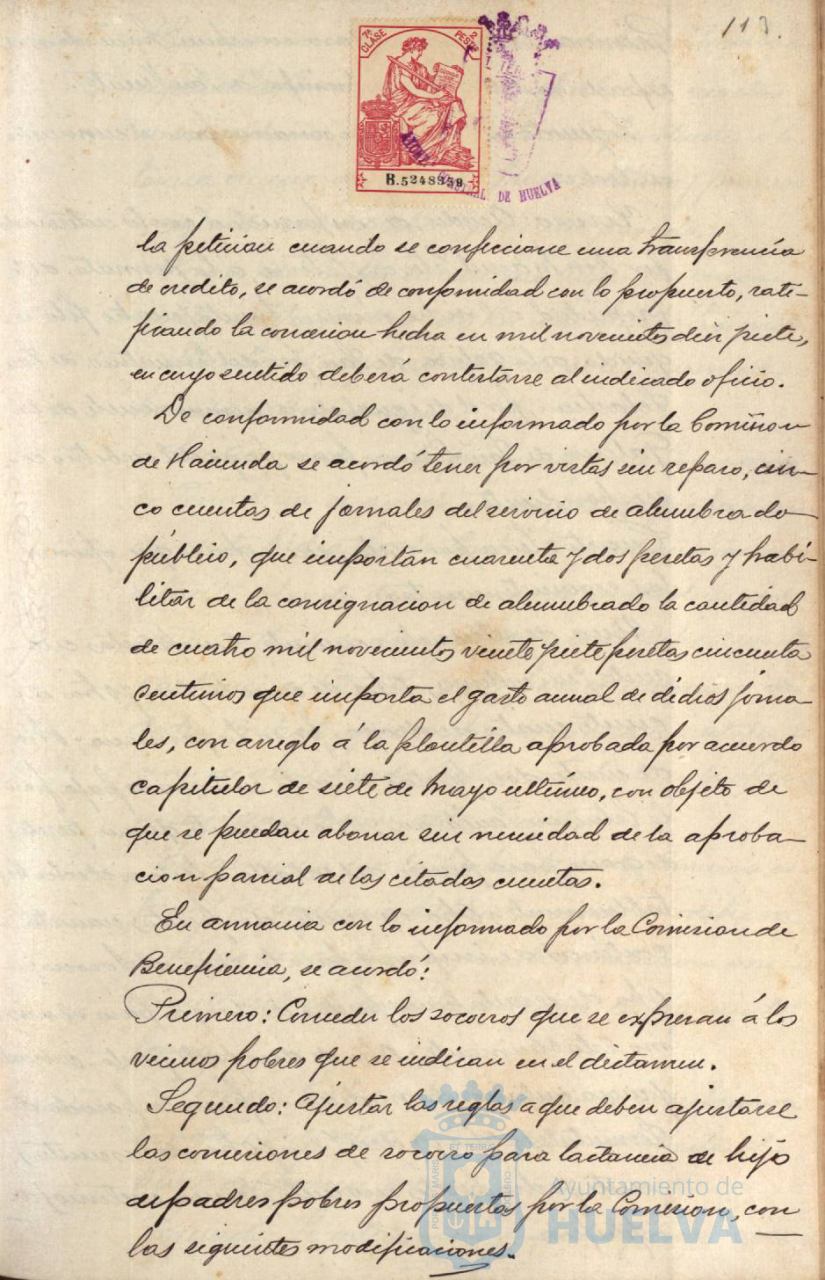 113.
7ª CLASE 2 PESETAS
B.5248939
DE HUELVA
la peticion cuando se confeccione una transferencia
de credito, se acordó de conformidad con lo propuesto, rati-
ficando la concesion hecha en mil novecientos diez siete,
en cuyo sentido deberá contestarse al indicado oficio.
De conformidad con lo informado por la Comision
de Hacienda se acordó tener por vistas sin reparo, cin-
co cuentas de jornales del servicio de alumbrado
público, que importan cuarenta y dos pesetas y habi-
litar de la consignacion de alumbrado la cantidad
de cuatro mil novecientos veinte siete pesetas cincuenta
centimos que importa el gasto anual de dichos jorna-
les, con arreglo á la plantilla aprobada por acuerdo
capitular de siete de Mayo ultimo, con objeto de
que se puedan abonar sin necesidad de la aproba-
cion parcial de las citadas cuentas.
En armonia con lo informado por la Comision de
Beneficencia, se acordó:
Primero: Conceder los socorros que se expresan á los
vecinos pobres que se indican en el dictamen.
Segundo: Ajustar las reglas a que deben ajustarse
las concesiones de socorro para lactancia de hijo
de padres pobres propuestas por la Comision, con
las siguientes modificaciones.
Ayuntamiento de
HUELVA